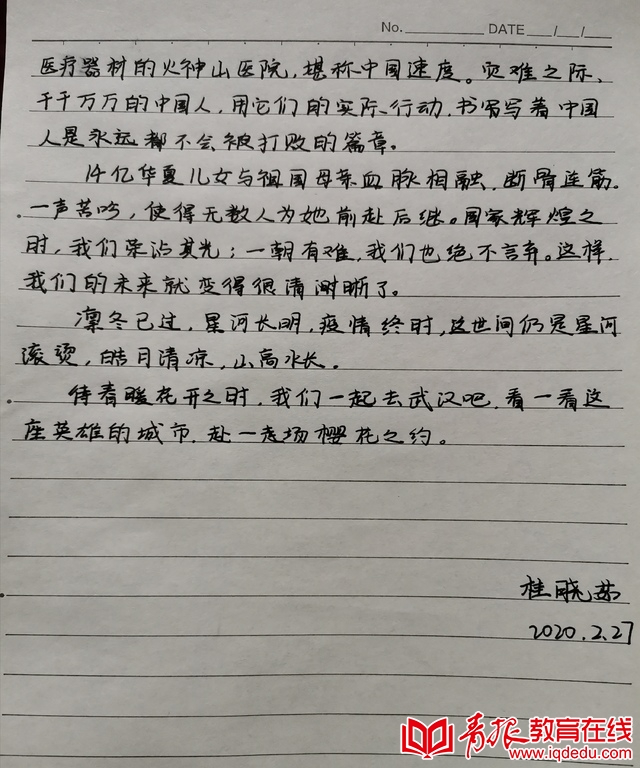 No. DATE / /
医疗器材的火神山医院，堪称中国速度。灾难之际、
千千万万的中国人，用它们的实际行动，书写写着中国
人是永远都不会被打败的篇章。
14亿华夏儿女与祖国母亲血脉相融，断骨连筋。
一声苦吟，使得无数人为她前赴后继。国家辉煌之
时，我们荣沾其光；一朝有难，我们也绝不言弃。这样，
我们的未来就变得很清晰了。
凛冬已过，星河长明，疫情终时，这世间仍是星河
滚烫，皓月清凉，山高水长。
待春暖花开之时，我们一起去武汉吧，看一看这
座英雄的城市，赴一场樱花之约。
桂晓茹
2020.2.27
青报教育在线
www.iqdedu.com